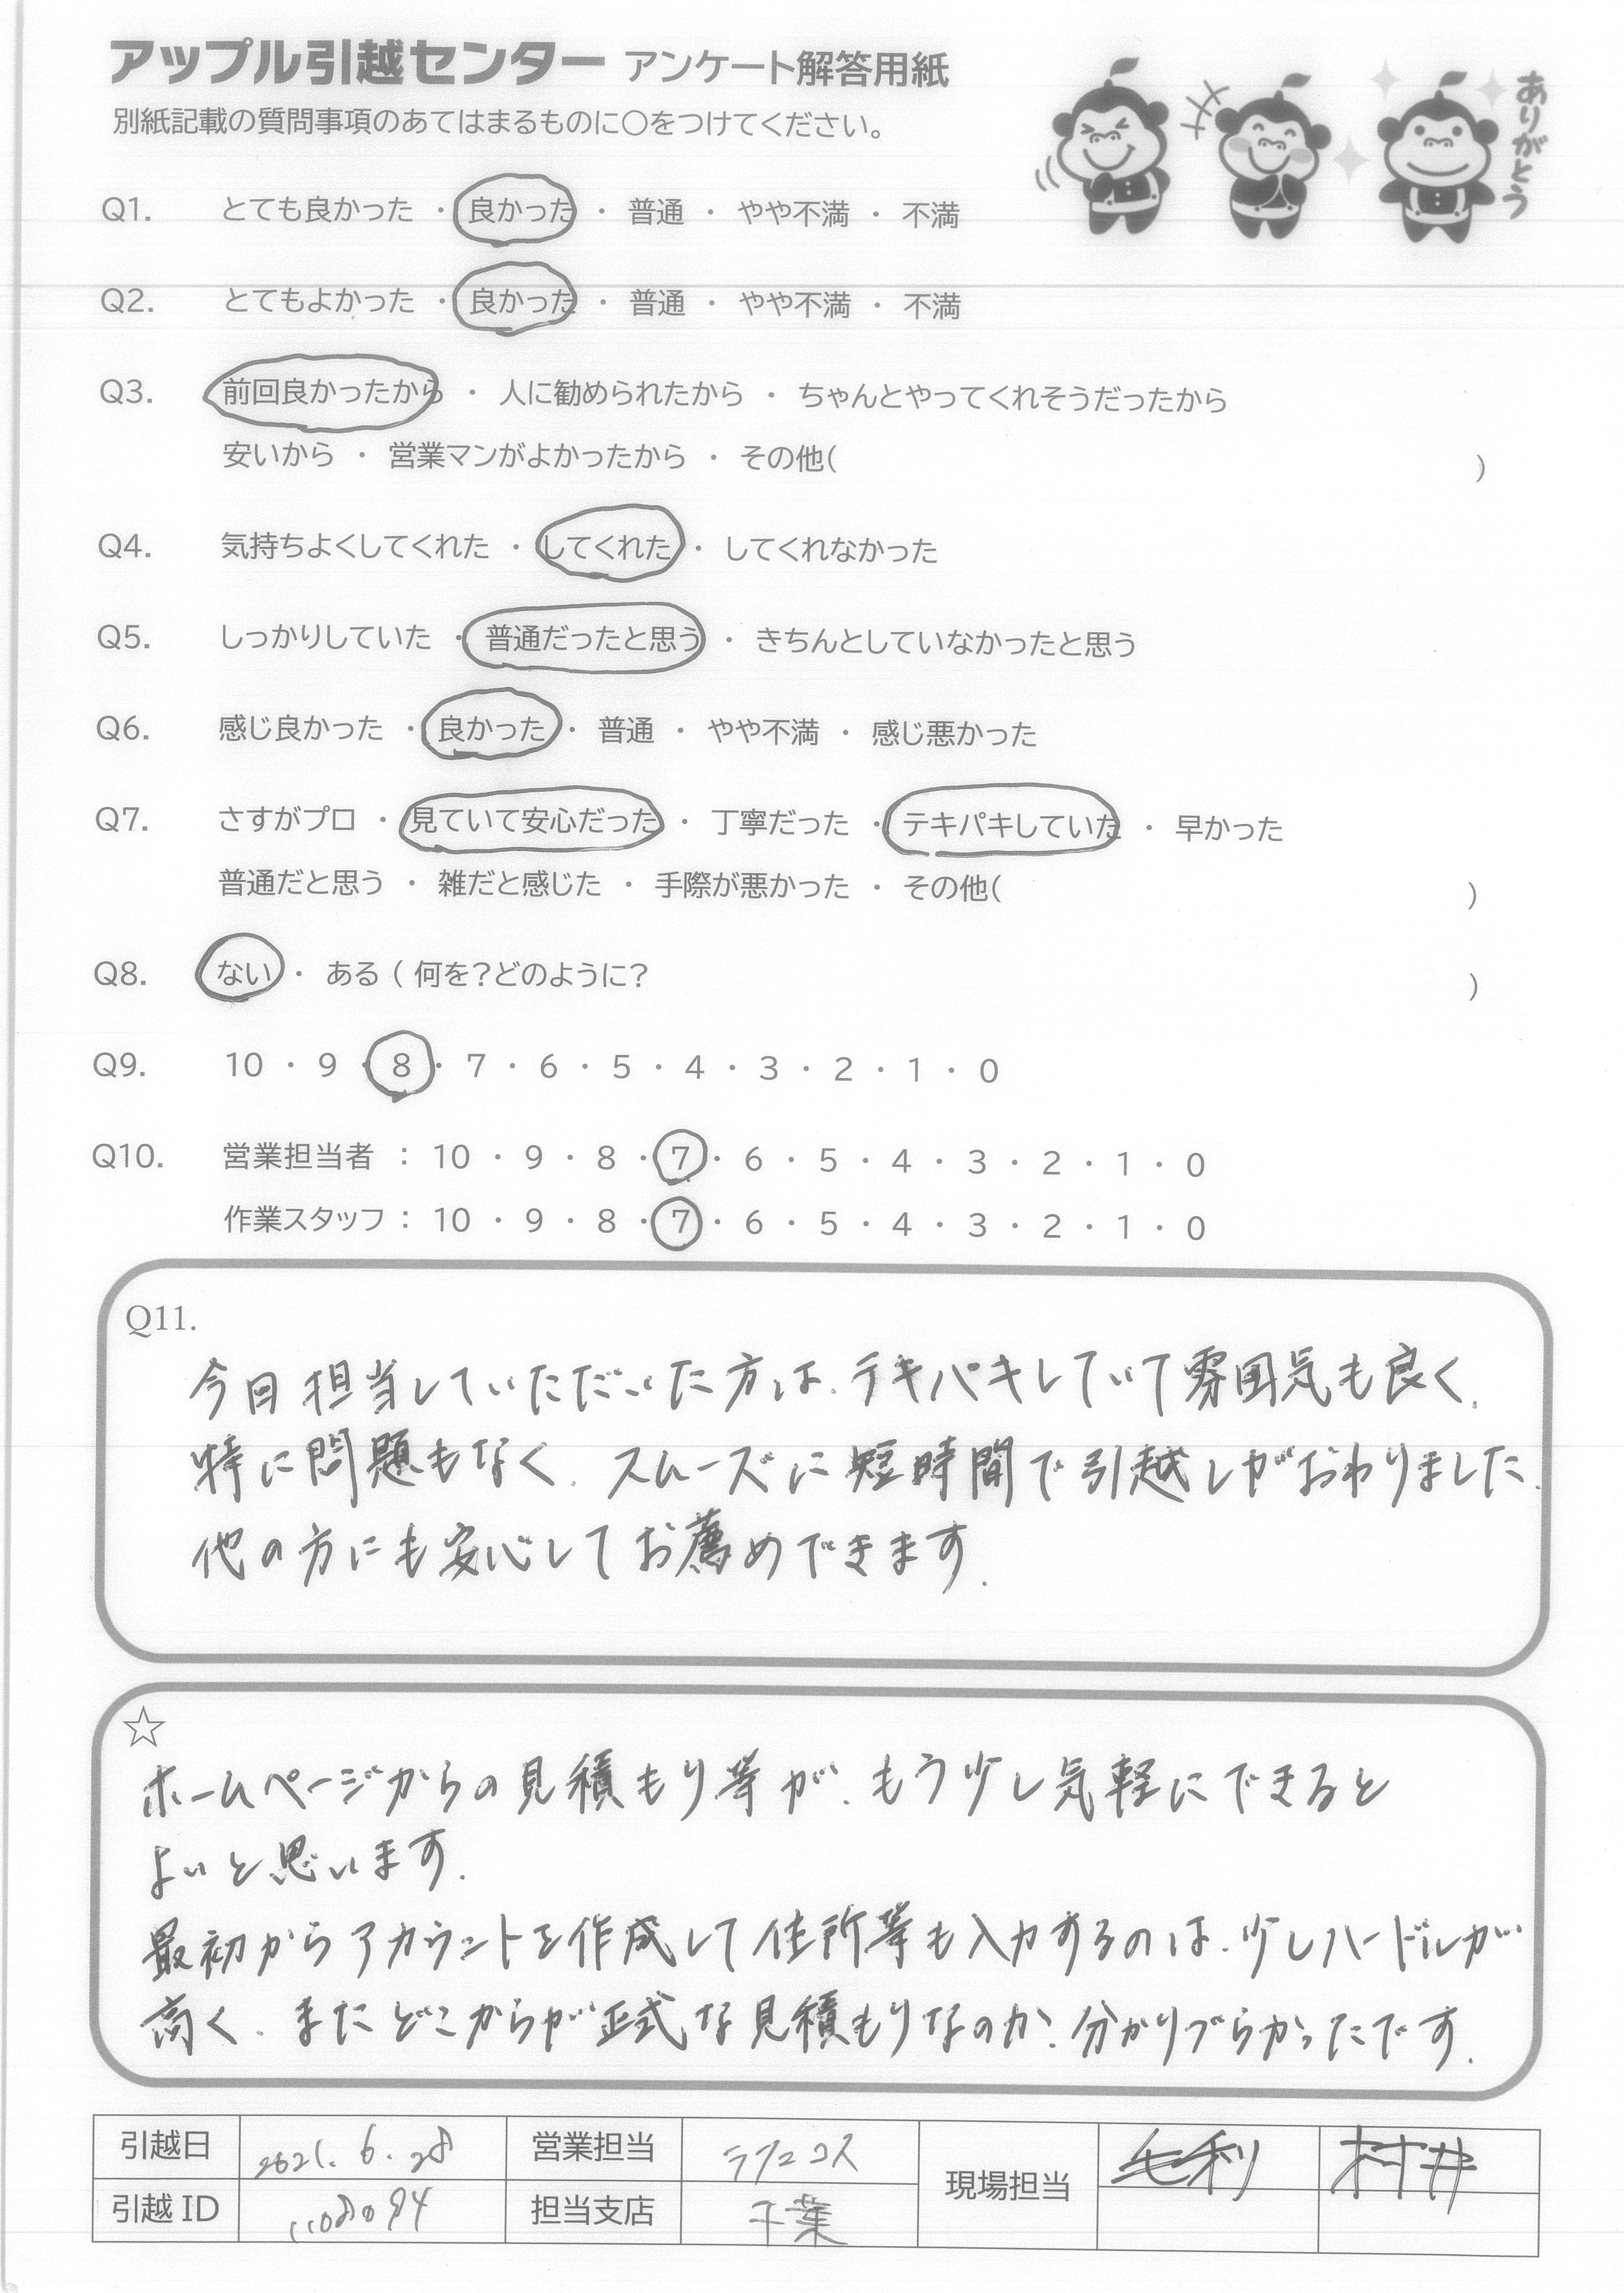 アップル引越センター アンケート解答用紙
別紙記載の質問事項のあてはまるものに○をつけてください。
ありがとう
Q1. とても良かった ・ 良かった ・ 普通 ・ やや不満 ・ 不満
Q2. とてもよかった ・ 良かった ・ 普通 ・ やや不満 ・ 不満
Q3. 前回良かったから ・ 人に勧められたから ・ ちゃんとやってくれそうだったから
安いから ・ 営業マンがよかったから ・ その他( )
Q4. 気持ちよくしてくれた ・ してくれた ・ してくれなかった
Q5. しっかりしていた ・ 普通だったと思う ・ きちんとしていなかったと思う
Q6. 感じ良かった ・ 良かった ・ 普通 ・ やや不満 ・ 感じ悪かった
Q7. さすがプロ ・ 見ていて安心だった ・ 丁寧だった ・ テキパキしていた ・ 早かった
普通だと思う ・ 雑だと感じた ・ 手際が悪かった ・ その他( )
Q8. ない ・ ある ( 何を?どのように? )
Q9. 10 ・ 9 ・ 8 ・ 7 ・ 6 ・ 5 ・ 4 ・ 3 ・ 2 ・ 1 ・ 0
Q10. 営業担当者 : 10 ・ 9 ・ 8 ・ 7 ・ 6 ・ 5 ・ 4 ・ 3 ・ 2 ・ 1 ・ 0
作業スタッフ : 10 ・ 9 ・ 8 ・ 7 ・ 6 ・ 5 ・ 4 ・ 3 ・ 2 ・ 1 ・ 0
Q11.
今日担当していただいた方は、テキパキしていて雰囲気も良く、
特に問題もなく、スムーズに短時間で引越しがおわりました.
他の方にも安心してお薦めできます.
☆
ホームページからの見積もり等が、もう少し気軽にできると
よいと思います.
最初からアカウントを作成して住所等も入力するのは、少しハードルが
高く、またどこからが正式な見積もりなのか、分かりづらかったです.
引越日 2021. 6. 28 営業担当 現場担当 毛利 村井
引越 ID 担当支店 千葉